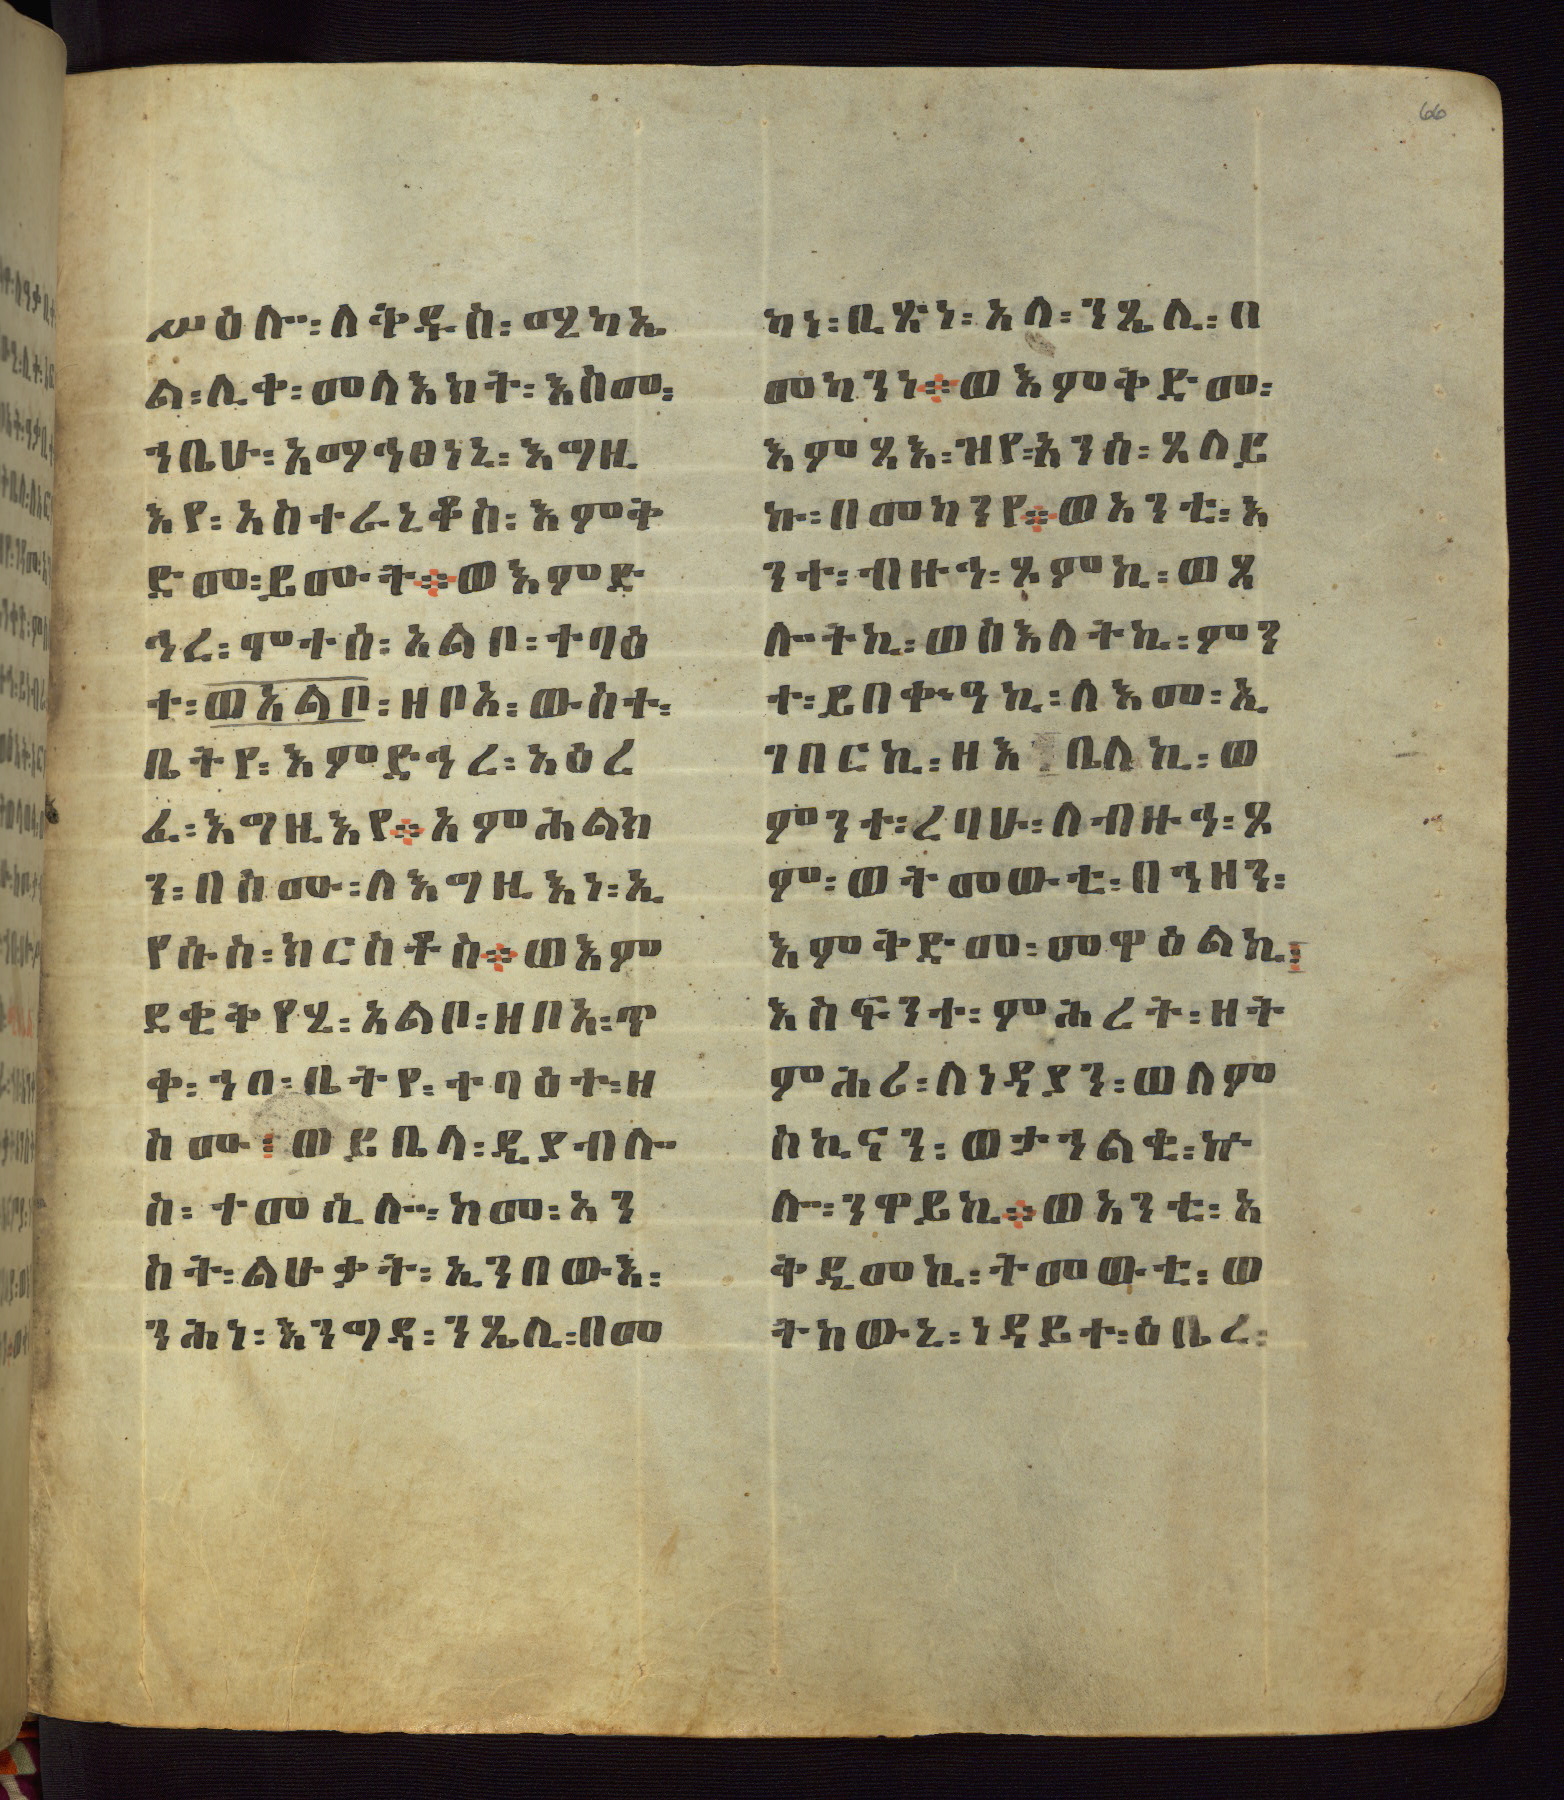 66
ሥዕሉ፡ለቅዱስ፡ሚካኤ
ል፡ሊቀ፡መላእክት፡እስመ፡
ኀቤሁ፡አማኅፀነኒ፡እግዚ
እየ፡አስተራኒቆስ፡እምቅ
ድመ፡ይሙት፨ወእምድ
ኅረ፡ሞተሰ፡አልቦ፡ተባዕ
ተ፡ወአልቦ፡ዘቦአ፡ውስተ፡
ቤትየ፡እምድኅረ፡አዕረ
ፈ፡እግዚእየ፨አምሕልክ
ን፡በስሙ፡ለእግዚእነ፡ኢ
የሱስ፡ክርስቶስ፨ወእም
ደቂቅየሂ፡አልቦ፡ዘቦአ፡ጥ
ቀ፡ኀበ፡ቤትየ፡ተባዕተ፡ዘ
ስሙ፡ወይቤላ፡ዲያብሎ
ስ፡ተመሲሎ፡ከመ፡አን
ስት፡ልሁቃት፡ኢንበውእ፡
ንሕነ፡እንግዳ፡ንጼሊ፡በመ
ካነ፡ቢጽነ፡አላ፡ንጼሊ፡በ
መካንነ፨ወእምቅድመ፡
እምጻእ፡ዝየ፡አንሰ፡ጸለይ
ኩ፡በመካንየ፨ወአንቲ፡እ
ንተ፡ብዙኅ፡ጾምኪ፡ወጸ
ሎትኪ፡ወስእለትኪ፡ምን
ተ፡ይበቍዓኪ፡ለእመ፡ኢ
ገበርኪ፡ዘእቤለኪ፡ወ
ምንተ፡ረባሁ፡ለብዙኅ፡ጾ
ም፡ወትመውቲ፡በኀዘን፡
እምቅድመ፡መዋዕልኪ፡
እስፍንተ፡ምሕረት፡ዘት
ምሕሪ፡ለነዳያን፡ወለም
ስኪናን፡ወታኀልቂ፡ኵ
ሎ፡ንዋይኪ፨ወአንቲ፡አ
ቅዲመኪ፡ትመውቲ፡ወ
ትከውኒ፡ነዳይተ፡ዕቤረ፡